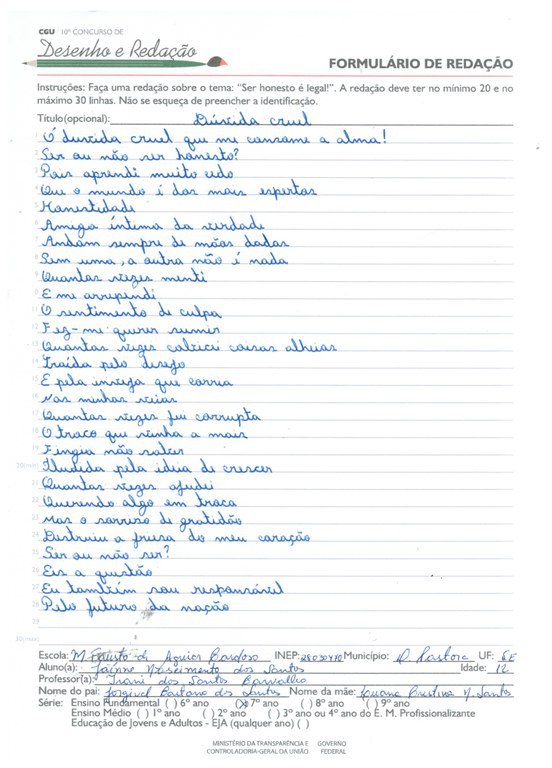 CGU 10º CONCURSO DE
Desenho e Redação
FORMULÁRIO DE REDAÇÃO
Instruções: Faça uma redação sobre o tema: "Ser honesto é legal!". A redação deve ter no mínimo 20 e no
máximo 30 linhas. Não se esqueça de preencher a identificação.
Título(opcional): Dúvida cruel
1 Ó duvida cruel que me consome a alma!
2 Ser ou não ser honesto?
3 Pois aprendi muito cedo
4 Que o mundo é dos mais espertos
5 Honestidade
6 Amiga íntima da verdade
7 Andam sempre de mãos dadas
8 Sem uma, a outra não é nada
9 Quantas vezes menti
10 E me arrependi
11 O sentimento de culpa
12 Fez-me querer sumir
13 Quantas vezes cobicei coisas alheias
14 Traída pelo desejo
15 E pela inveja que corria
16 Nas minhas veias
17 Quantas vezes fui corrupta
18 O troco que vinha a mais
19 Fingia não saber
20(min) Iludida pela ideia de crescer
21 Quantas vezes ajudei
22 Querendo algo em troca
23 Mas o sorriso de gratidão
24 Destruiu a frieza do meu coração
25 Ser ou não ser?
26 Eis a questão
27 Eu também sou responsável
28 Pelo futuro da nação
29
30(max)
Escola: M. Fausto de Aguiar Cardoso INEP: Município: D. Pastora UF: SE
Aluno(a): Nascimento dos Santos Idade: 12
Professor(a): Irani dos Santos Carvalho
Nome do pai: Jorgival Caetano dos Santos Nome da mãe: Cristina N. Santos
Série: Ensino Fundamental ( ) 6º ano (X) 7º ano ( ) 8º ano ( ) 9º ano
Ensino Médio ( ) 1º ano ( ) 2º ano ( ) 3º ano ou 4º ano do E. M. Profissionalizante
Educação de Jovens e Adultos - EJA (qualquer ano) ( )
MINISTÉRIO DA TRANSPARÊNCIA E GOVERNO
CONTROLADORIA-GERAL DA UNIÃO FEDERAL